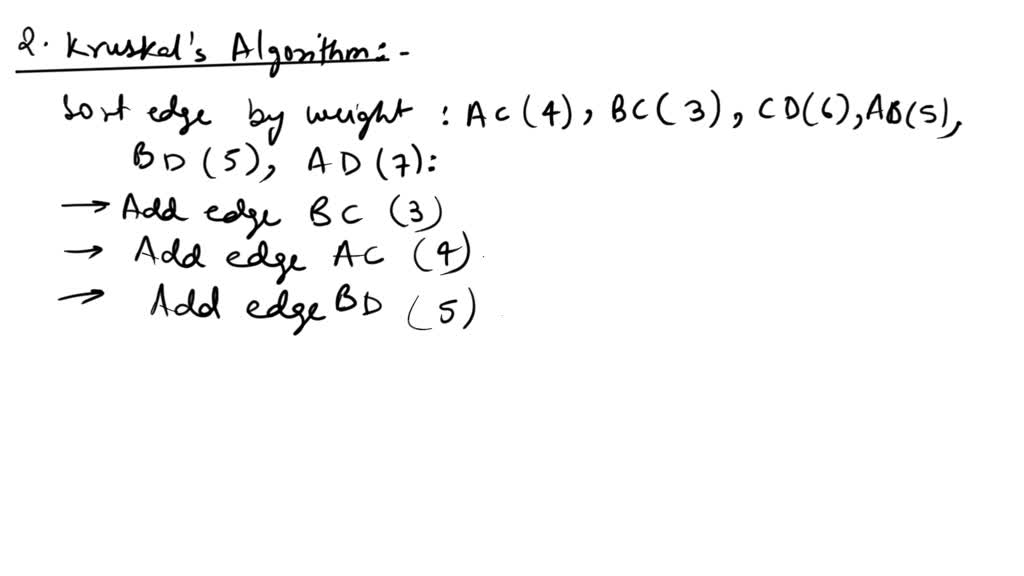 2. Kruskal's Algorithm:-
Sort edge by weight : AC(4), BC(3), CD(6), AB(5),
BD(5), AD(7):
→ Add edge BC (3)
→ Add edge AC (4)
→ Add edge BD (5)